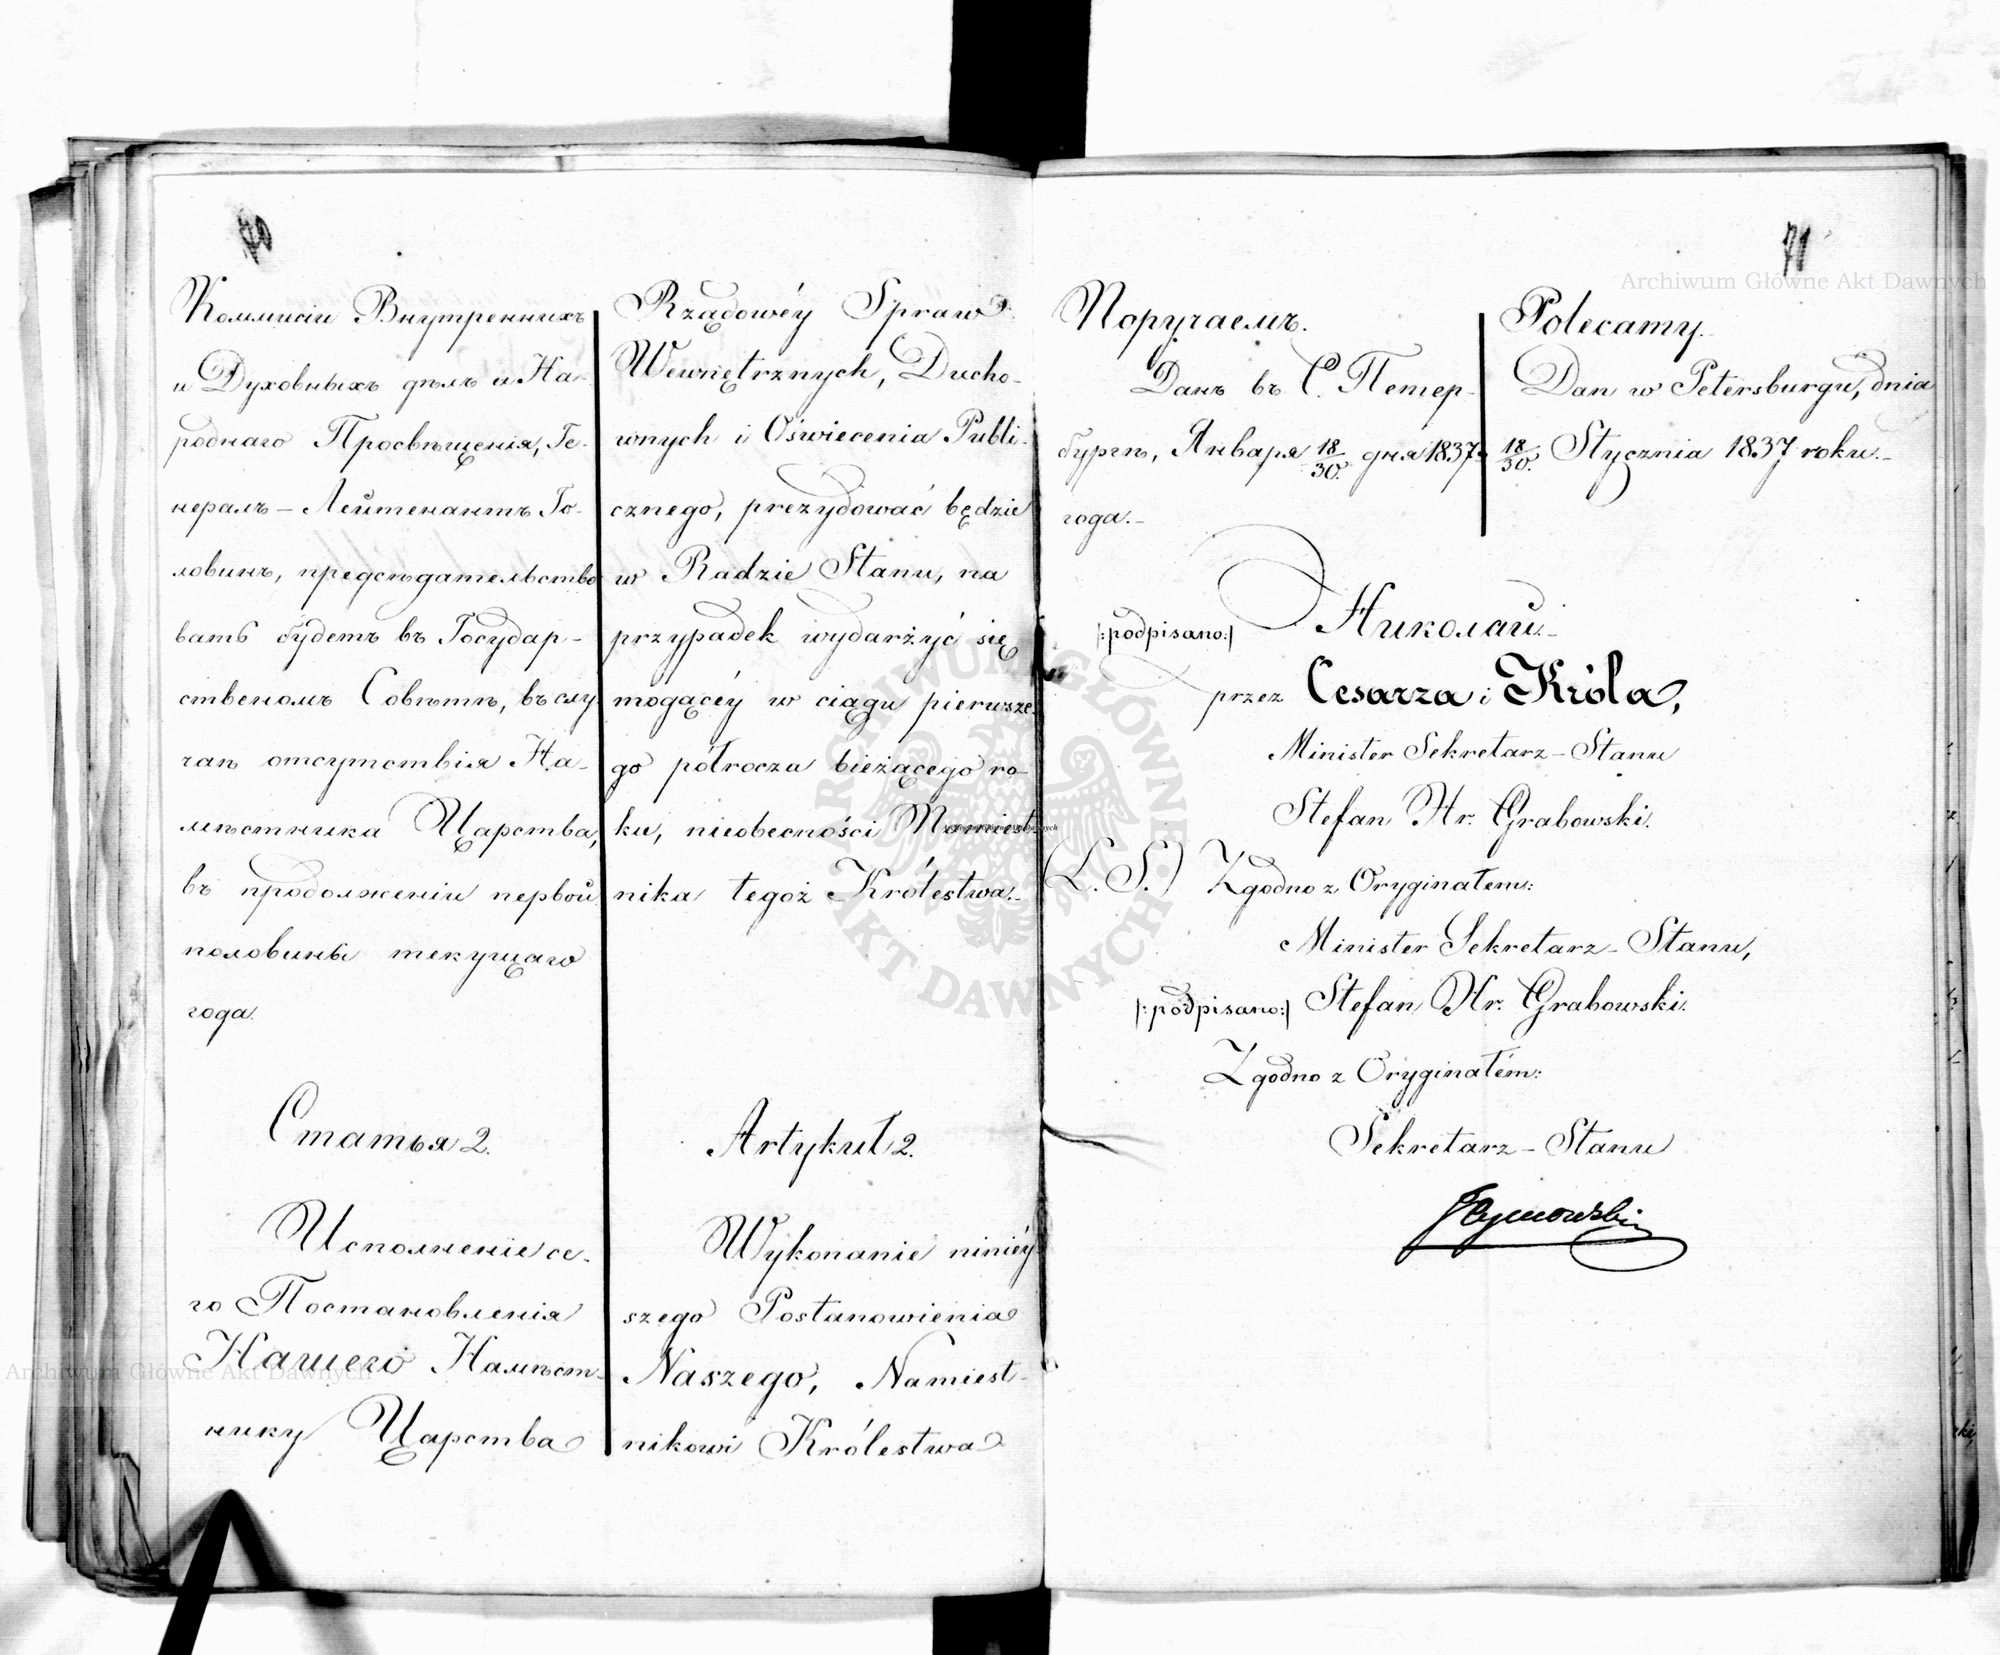 70
Коммисіи Внутреннихъ
и Духовныхъ дѣлъ и На-
роднаго Просвѣщенія, Ге-
нералъ-Лейтенантъ Го-
ловинъ, предсѣдательство
вать будетъ въ Государ-
ственомъ Совѣтѣ, въ слу
чаѣ отсутствія На-
мѣстника Царства,
въ продолженіи первой
половины текущаго
года.
Статья 2.
Исполненіе се-
го Постановленія
Нашего Намѣст-
нику Царства
Rządowéy Spraw
Wewnętrznych, Ducho-
wnych i Oświecenia Publi-
cznego, prezydować będzie
w Radzie Stanu, na
przypadek wydarzyć się
mogącéy w ciągu pierwsze-
go półrocza bieżącego ro-
ku, nieobecności Namiest-
nika tegoż Królestwa.
Artykuł 2.
Wykonanie niniéy
szego Postanowienia
Naszego, Namiest-
nikowi Królestwa
71
Поручаемъ.
Данъ въ С. Петер-
бургѣ, Января 18/30. дня 1837
года.
Polecamy.
Dan w Petersburgu, dnia
18/30. Stycznia 1837 roku.
|:podpisano:| Николай.
przez Cesarza i Króla,
Minister Sekretarz-Stanu
Stefan Hr. Grabowski.
(L. S.) Zgodno z Oryginałem:
Minister Sekretarz-Stanu,
|:podpisano:| Stefan Hr. Grabowski.
Zgodno z Oryginałem:
Sekretarz-Stanu
Archiwum Główne Akt Dawnych
Archiwum Główne Akt Dawnych
ARCHIWUM GŁÓWNE AKT DAWNYCH